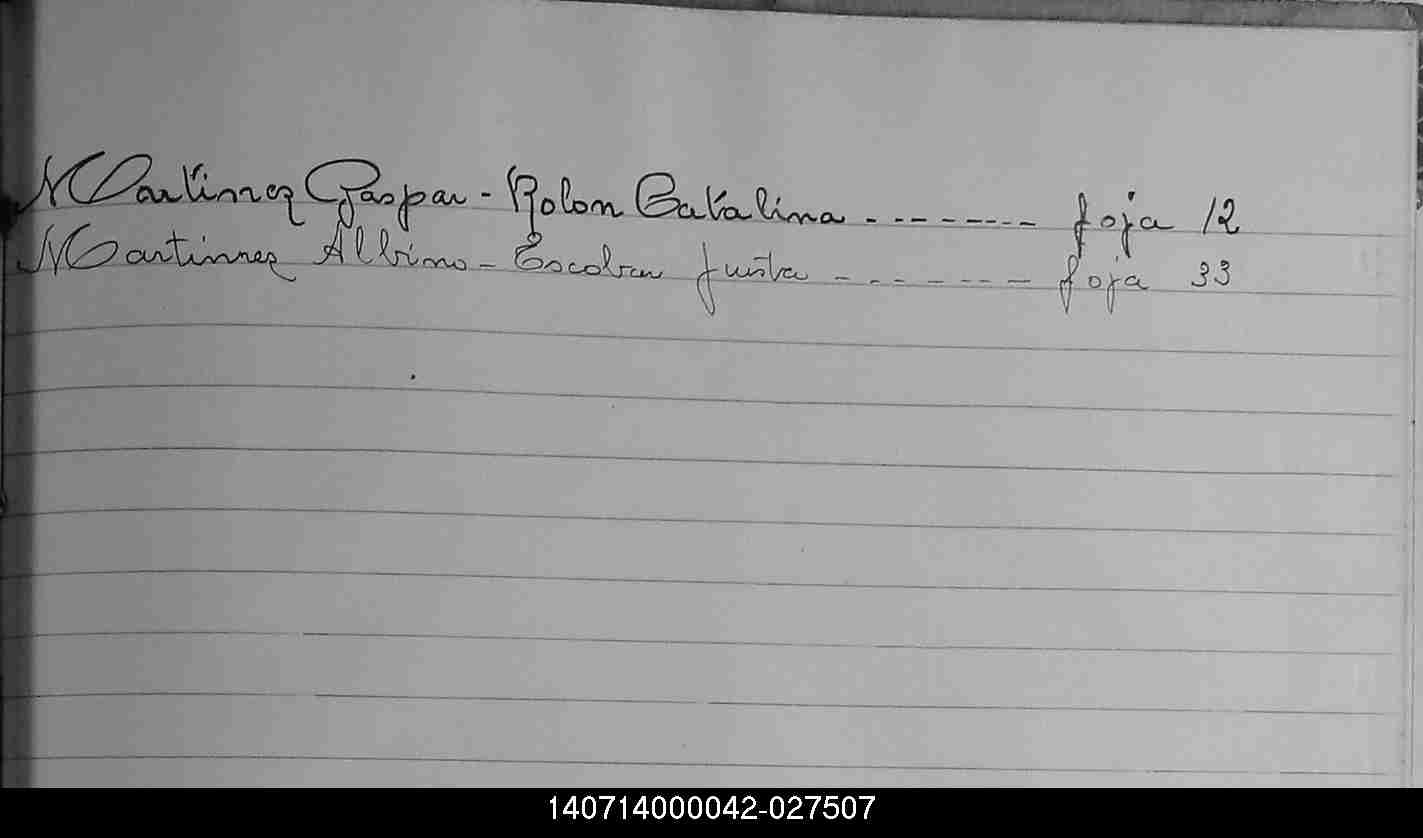 Martinez Gaspar - Rolon Catalina - - - - - - - - foja 12
Martinez Albino - Escobar Justa - - - - - - - foja 33
140714000042-027507